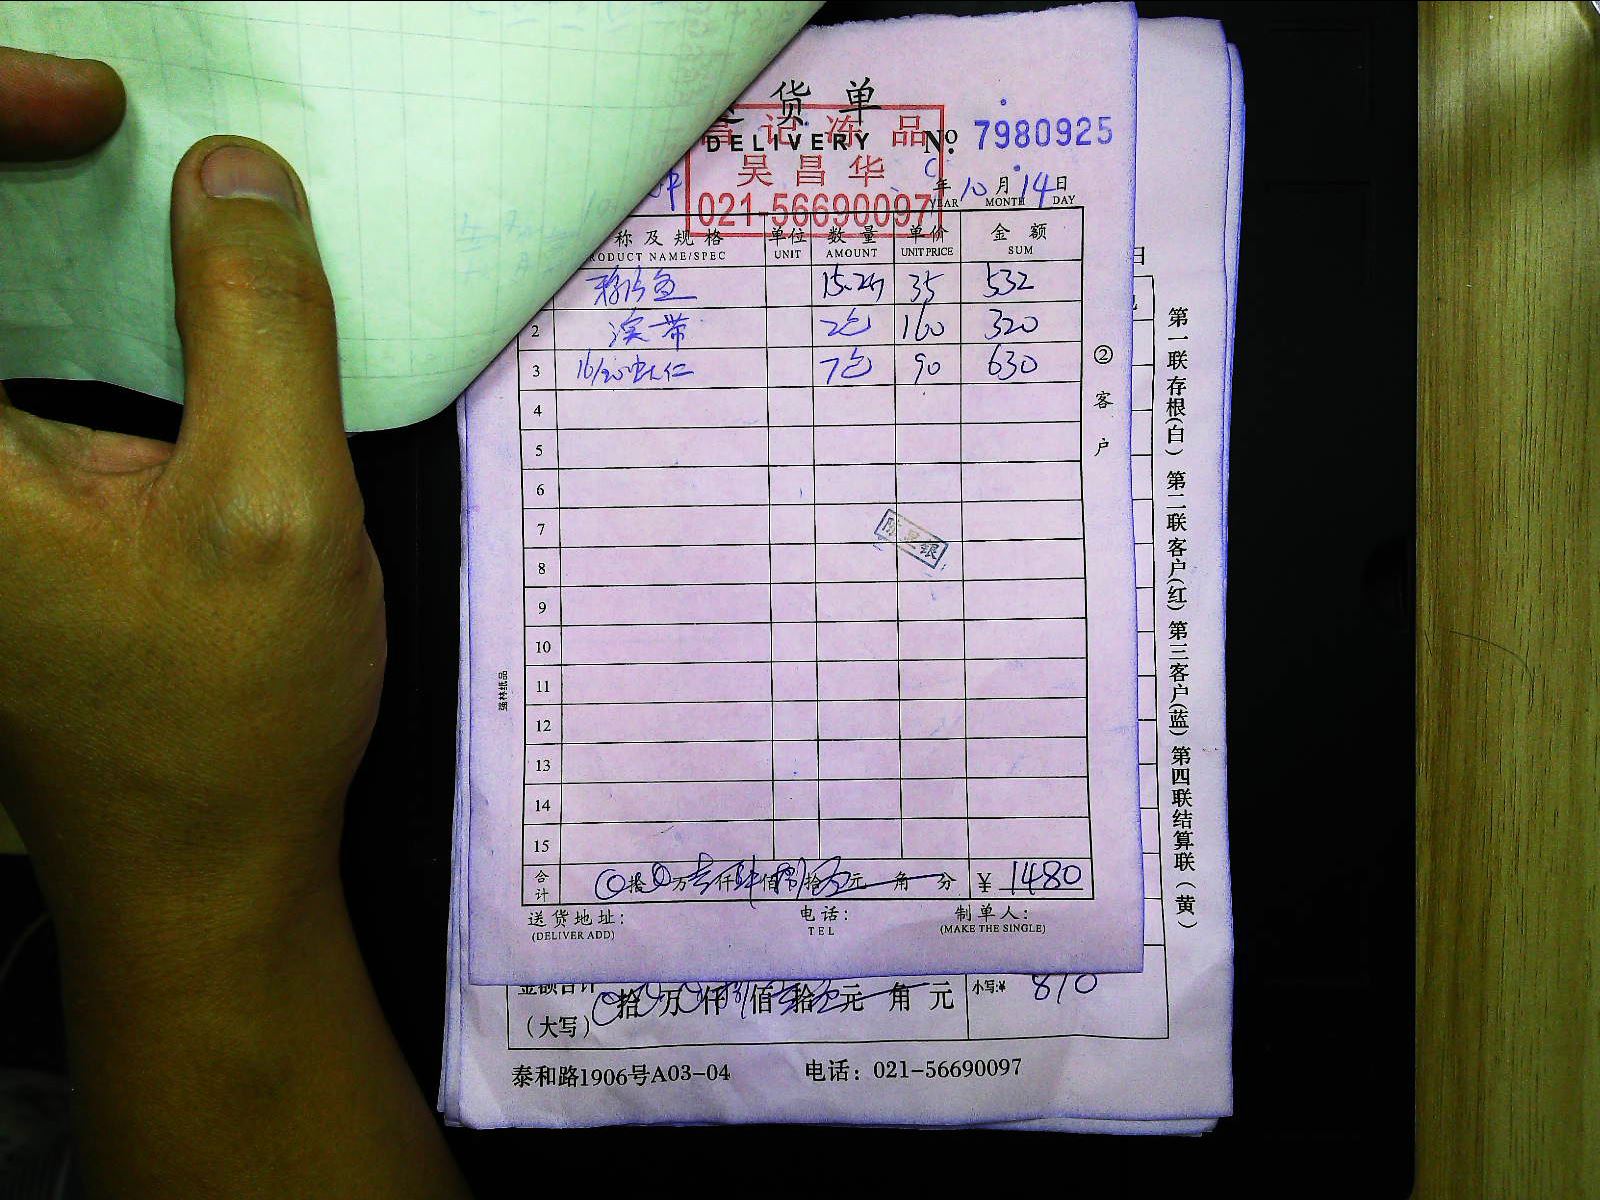 货 单
DELIVERY
昌 记 冻 品
吴 昌 华
021-56690097
No. 7980925
年 10 月 14 日
YEAR MONTH DAY
称 及 规 格 单位 数 量 单价 金 额
PRODUCT NAME/SPEC UNIT AMOUNT UNIT PRICE SUM
15.2斤 35 532
2 2包 160 320
3 16/20虾仁 7包 90 630
4
5
6
7
8
9
10
11
12
13
14
15
② 客户
强林纸品
合计 拾 万 仟 佰 拾 元 角 分 ¥ 1480
送货地址: 电话: 制单人:
(DELIVER ADD) TEL (MAKE THE SINGLE)
第一联存根(白) 第二联客户(红) 第三客户(蓝) 第四联结算联(黄)
日
金额合计 拾 万 仟 佰 拾 元 角 元 小写:¥ 810
(大写)
泰和路1906号A03-04 电话: 021-56690097